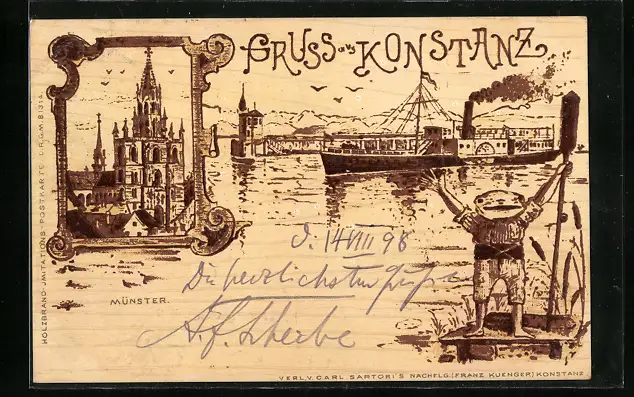 GRUSS aus KONSTANZ
HOLZBRAND-IMITATIONS-POSTKARTE. D.R.G.M.
MÜNSTER.
d. 14 VIII 98
Die herzlichsten Grüsse
VERL. V. CARL SARTORI'S NACHFLG. (FRANZ KUENGER) KONSTANZ